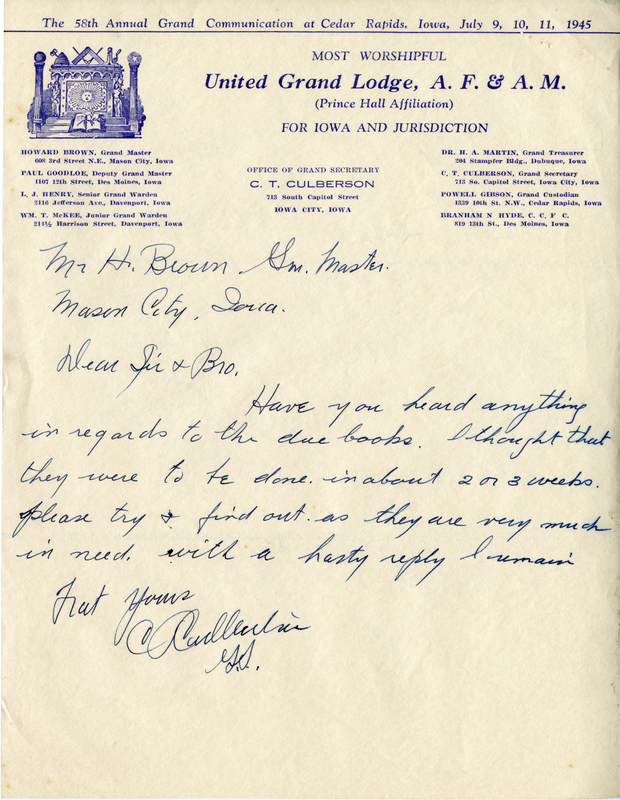 The 58th Annual Grand Communication at Cedar Rapids, Iowa, July 9, 10, 11, 1945
MOST WORSHIPFUL
United Grand Lodge, A. F. & A. M.
(Prince Hall Affiliation)
FOR IOWA AND JURISDICTION
HOWARD BROWN, Grand Master
608 3rd Street N.E., Mason City, Iowa
PAUL GOODLOE, Deputy Grand Master
1107 12th Street, Des Moines, Iowa
L. J. HENRY, Senior Grand Warden
2116 Jefferson Ave., Davenport, Iowa
WM. T. McKEE, Junior Grand Warden
214½ Harrison Street, Davenport, Iowa
OFFICE OF GRAND SECRETARY
C. T. CULBERSON
713 South Capitol Street
IOWA CITY, IOWA
DR. H. A. MARTIN, Grand Treasurer
204 Stampfer Bldg., Dubuque, Iowa
C. T. CULBERSON, Grand Secretary
713 So. Capitol Street, Iowa City, Iowa
POWELL GIBSON, Grand Custodian
1339 10th St. N.W., Cedar Rapids, Iowa
BRANHAM N HYDE, C. C. F. C.
819 13th St., Des Moines, Iowa
Mr H. Brown Gr. Master.
Mason City, Iowa.
Dear Sir & Bro.
Have you heard anything
in regards to the due books. I thought that
they were to be done. in about 2 or 3 weeks.
please try & find out. as they are very much
in need. with a hasty reply I remain
Frat Yours
C Culberson
G.S.